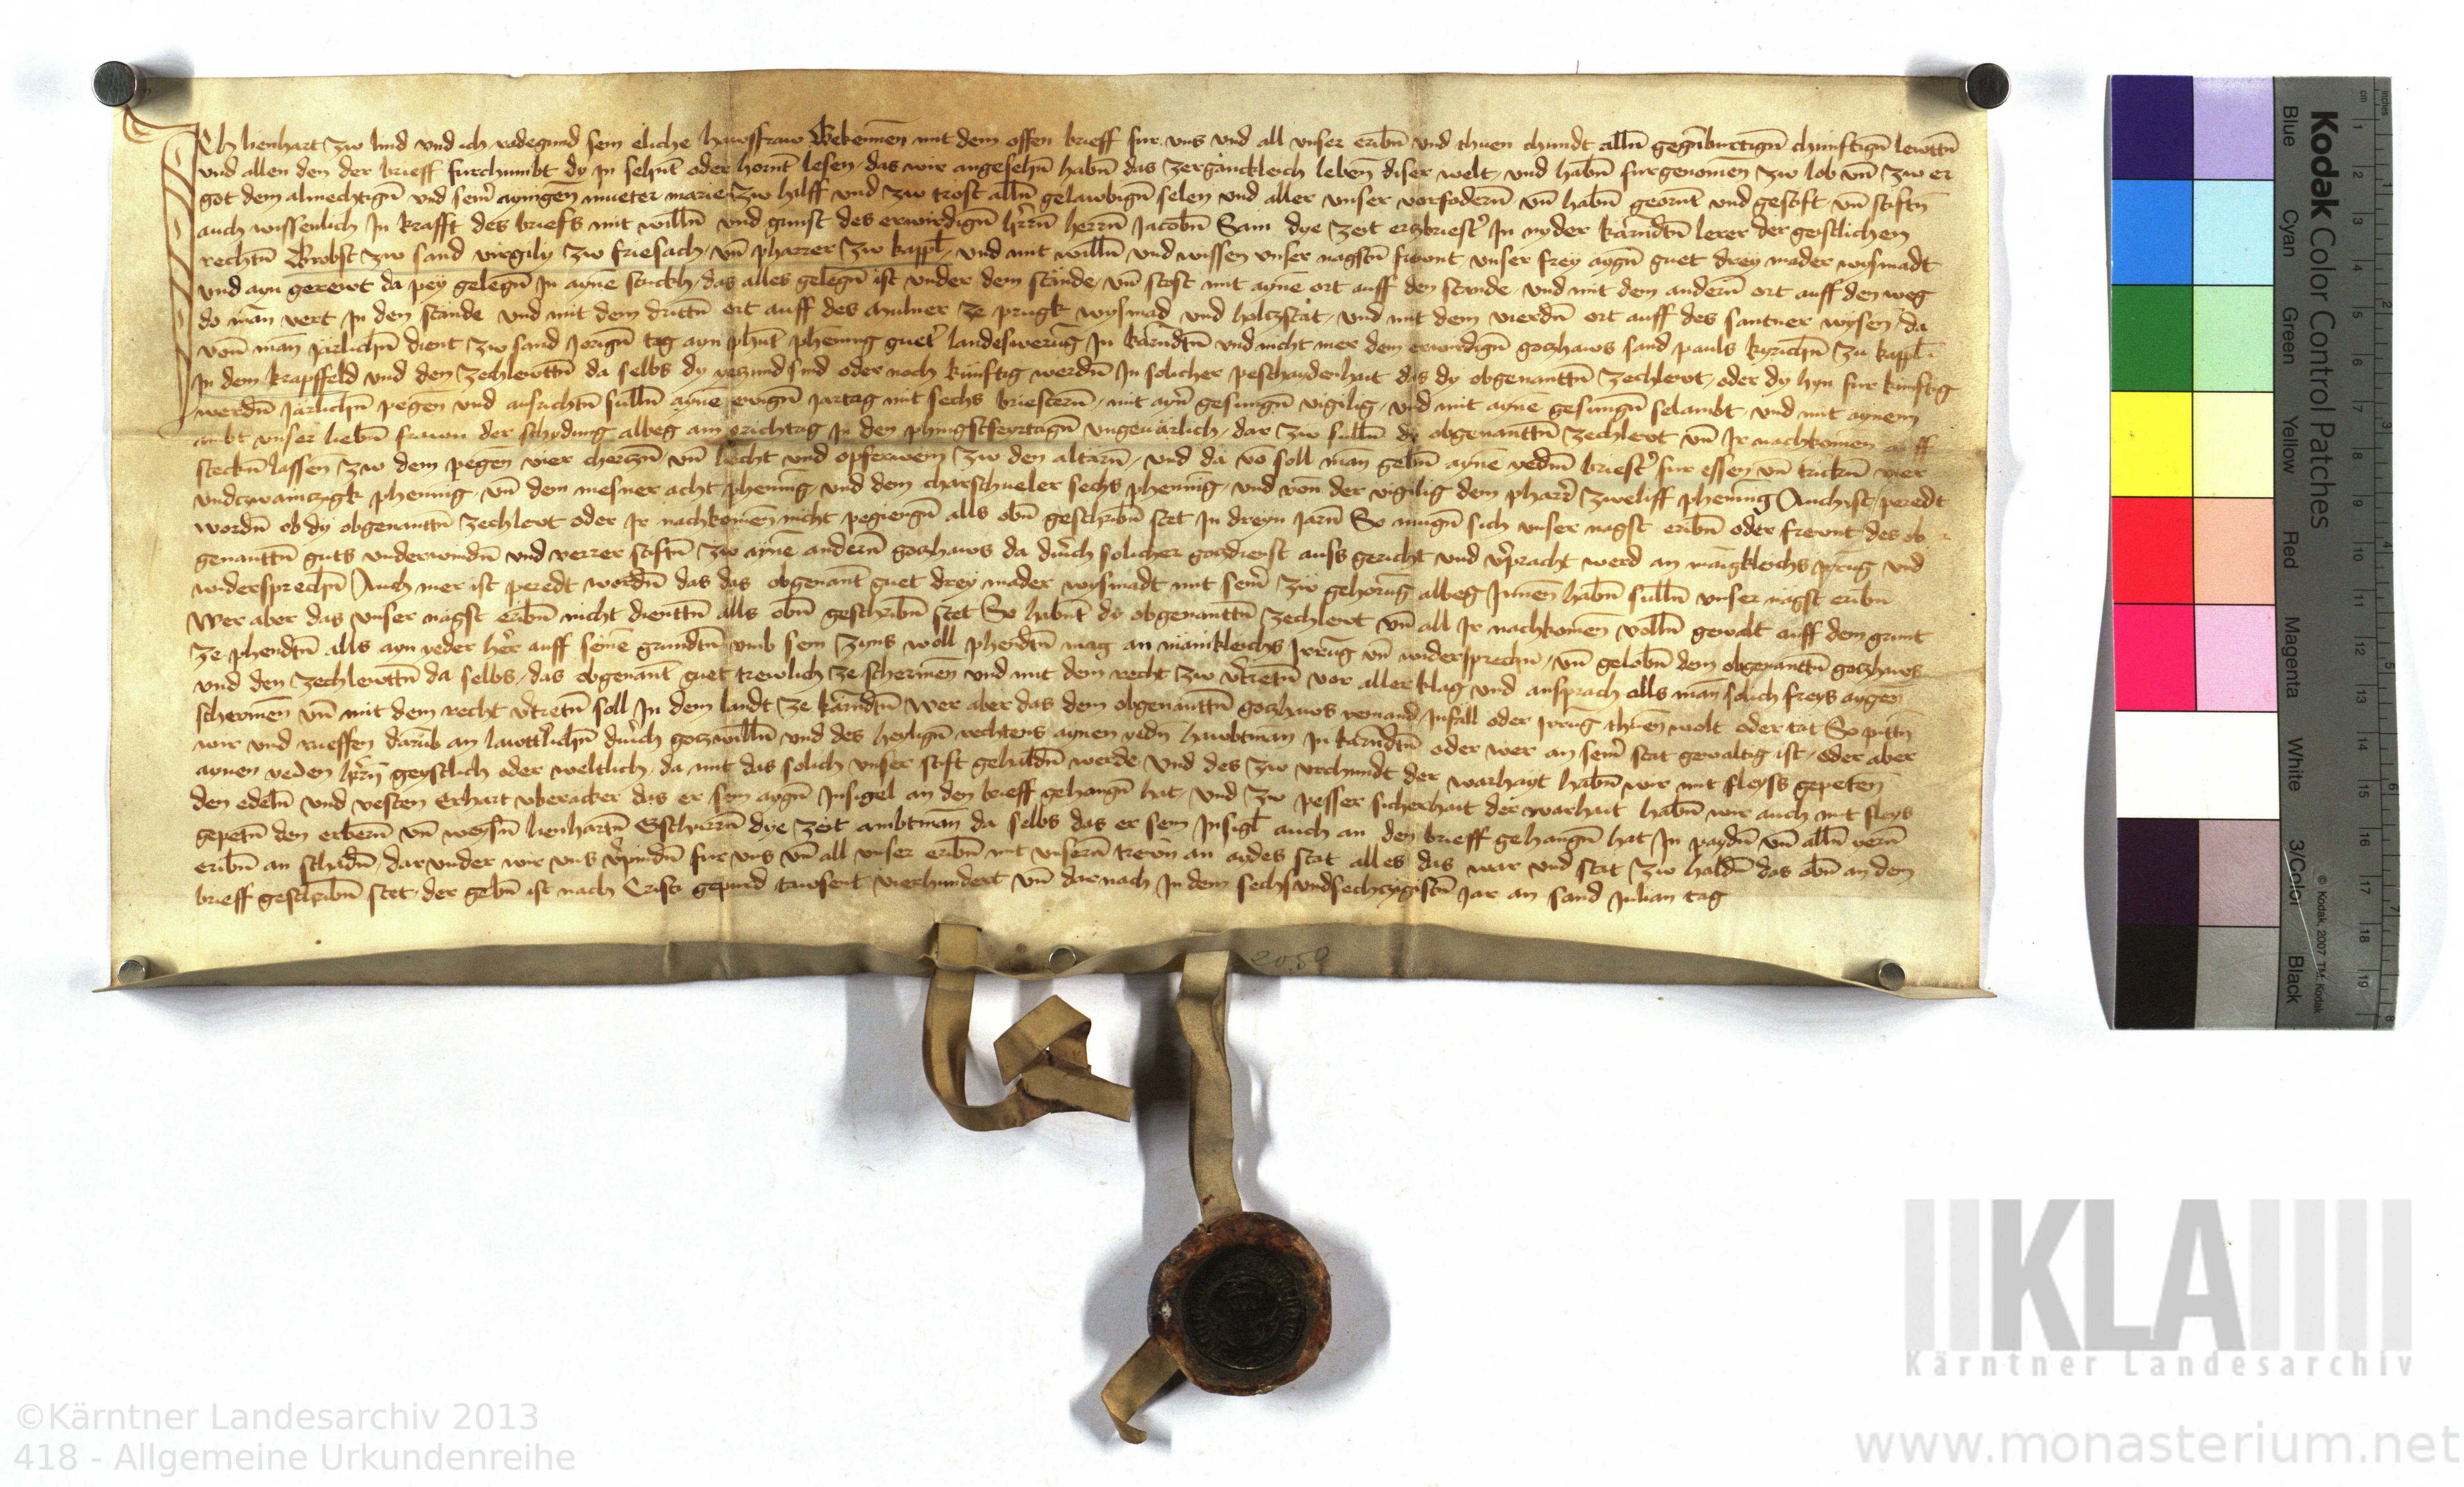 Ich lienhart zw lind vnd ich radegund sein eliche hawsfraw Bekennen mit dem offen brieff fur vns vnd all vnser eribn̄ vnd thuen chundt alln̄ gegn̄burttign̄ chunftign̄ lewttn̄
vnd allen den der brieff furchumbt dy In sehnt oder hornt lesen das wir angesehn̄ habn̄ das zerganckleich leben̄ diser welt vnd habn̄ furgenomen̄ zw lob vn̄ zw er
got dem almechtign̄ vnd sein̄ aynigen mueter marie zw hilff vnd zw trost alln̄ gelawbign̄ selen vnd aller vnser vorfodern̄ vn̄ habn̄ geornt vnd gestift vn̄ stiftn̄
auch wissenlich In krafft des briefs mit willn̄ vnd gunst des erwirdign̄ hern̄ herrn̄ Jacobn̄ dye zeit ertzbriest' In nyder karndtn̄ lerer der geistlichen
rechtn̄ Brobst zw sand virgily zw friesach vn̄ pharrer zw kappl vnd mit willn̄ vnd wissen vnser nagstn̄ frewnt vnser frey aygn̄ guet drey mader wysmadt
vnd ayn gerewt da pey gelegn̄ In ayne stuckh das alles gelegn̄ ist vnder dem stande vn̄ stost mit ayne ort auff den stande vnd mit dem andern̄ ort auff den weg
do man vert In den stande vnd mit dem drittn̄ ort auff des mulner ze prugk wysmad vnd holtzstat vnd mit dem vierdn̄ ort auff des santner wysen da
von̄ man jarlichn̄ dient zw sand Jorign̄ tag ayn phūt phening guet' landeswerūg In karndtn̄ vnd nicht mer dem erwirdign̄ gotzhaws sand pauls kyrichn̄ zu kappl
In dem krapffeld vnd den zechlewttn̄ da selbs dy yetzund sind oder noch kunftig werdn̄ In solicher peschaydenhait das dy obgenanttn̄ zechlewt oder dy hyn fur kunftig
werdn̄ jarlichn̄ pegen vnd ausrichtn̄ sulln̄ ayne ewign̄ jartag mit sechs briestern̄ mit ayn̄ gesungn̄ vigilig vnd mit ayne gesungn̄ selambt vnd mit aynem
ambt vnser liebn̄ frawn der schydung albeg am erichtag In den phingstfeyrtagn̄ vngeuarlich dar zw sulln̄ dy obgenanttn̄ zechlewt vn̄ Ir nachkomen auff
steckn̄ lassen zw dem pegen vier chertzn̄ vn̄ liecht vnd opferwein zw den altarn̄ vnd da vo soll man gebn̄ ayne yedm̄ briest' fur essen vn̄ trickn̄ vier
vndczwainczigk phening vn̄ dem mesner acht phening vnd dem charschueler sechs phening vnd von̄ der vigilig dem pharr' zweliff phening Auch ist peredt
wordn̄ ob dy obgenanttn̄ zechlewt oder Ir nachkomen nicht pegiengn̄ alls obn̄ geschribn̄ stet In dreyn jarn̄ So mugn̄ sich vnser nagst eribn̄ oder frewnt des ob
genanttn̄ guts vnderwindn̄ vnd verrer stiftn̄ zw ayne andern̄ gotzhaws da durch solicher gotzdienst auss gericht vnd v'pracht werd an mangkleichs yrrūg vnd
widersprechn̄ Auch mer ist peredt wordn̄ das das obgenant guet drey mader wysmadt mit sein̄ zw gehorūg albeg Innen habn̄ sulln̄ vnser nagst eribn̄
Wer aber das vnser nagst eribn̄ nicht dienttn̄ alls obn̄ geschribn̄ stet So habnt dy obgenanttn̄ zechlewt vn̄ all Ir nachkomen volln̄ gewalt auff dem grunt
ze phendtn̄ alls ayn yeder her auff seine grundtn̄ vmb sein zyns woll phendtn̄ mag an manikleichs Irrūg vn̄ widersprechn̄ vn̄ gelobn̄ dem obgenanttn̄ gotzhaws
vnd den zechlewttn̄ da selbs das obgenant guet trewlich ze schermen vnd mit dem recht zw v'tretn̄ vor aller klag vnd ansprach alls man solich freys aygen
schermen vn̄ mit dem recht v'tretn̄ soll In dem landt ze karndtn̄ wer aber das dem obgenanttn̄ gotzhaws yemand Infall oder Irrūg thuen wolt oder tat So pittn̄
wir vnd rueffen darūb an lawttrlichn̄ durch gotzwilln̄ vnd des heylign̄ rechtens aynen yedn̄ hawbtman In karndtn̄ oder wer an sein̄ stat gewaltig ist oder aber
aynen yeden hern̄ geystlich oder weltlich da mit das solich vnser stift gehaldn̄ werde vnd des zw vrchundt der warhayt habn̄ wir mit fleyss gepeten
den edeln̄ vnd vesten Erhart vberacker das er sein aygn̄ Insigel an den brieff gehangn̄ hat vnd zw pesser sicherhait der warhait habn̄ wir auch mit fleys
gepetn̄ den erbern̄ vn̄ weysn̄ lienhartn̄ dye zeit ambtman da selbs das er sein Insigl auch an den brieff gehangn̄ hat In paydn̄ vn̄ alln̄ yern̄
eribn̄ an schadn̄ dar vnder wir vns v'pindn̄ fur vns vn̄ all vnser eribn̄ mit vnsern̄ trewn an aydes stat alles das war vnd stat zw haldn̄ das obn̄ an dem
brieff geschribn̄ stet der gebn̄ ist nach Cristi gepurd tawsent vierhundert vn̄ darnach In dem sechsvndsechtzigistn̄ Jar an sand Julian tag
2050
Kodak Color Control Patches
Blue Cyan Green Yellow Red Magenta White 3/Color Black
© Kodak, 2007 TM: Kodak
cm 1 2 3 4 5 6 7 8 9 10 11 12 13 14 15 16 17 18 19
inches 1 2 3 4 5 6 7 8
KLA
Kärntner Landesarchiv
©Kärntner Landesarchiv 2013
418 - Allgemeine Urkundenreihe
www.monasterium.net